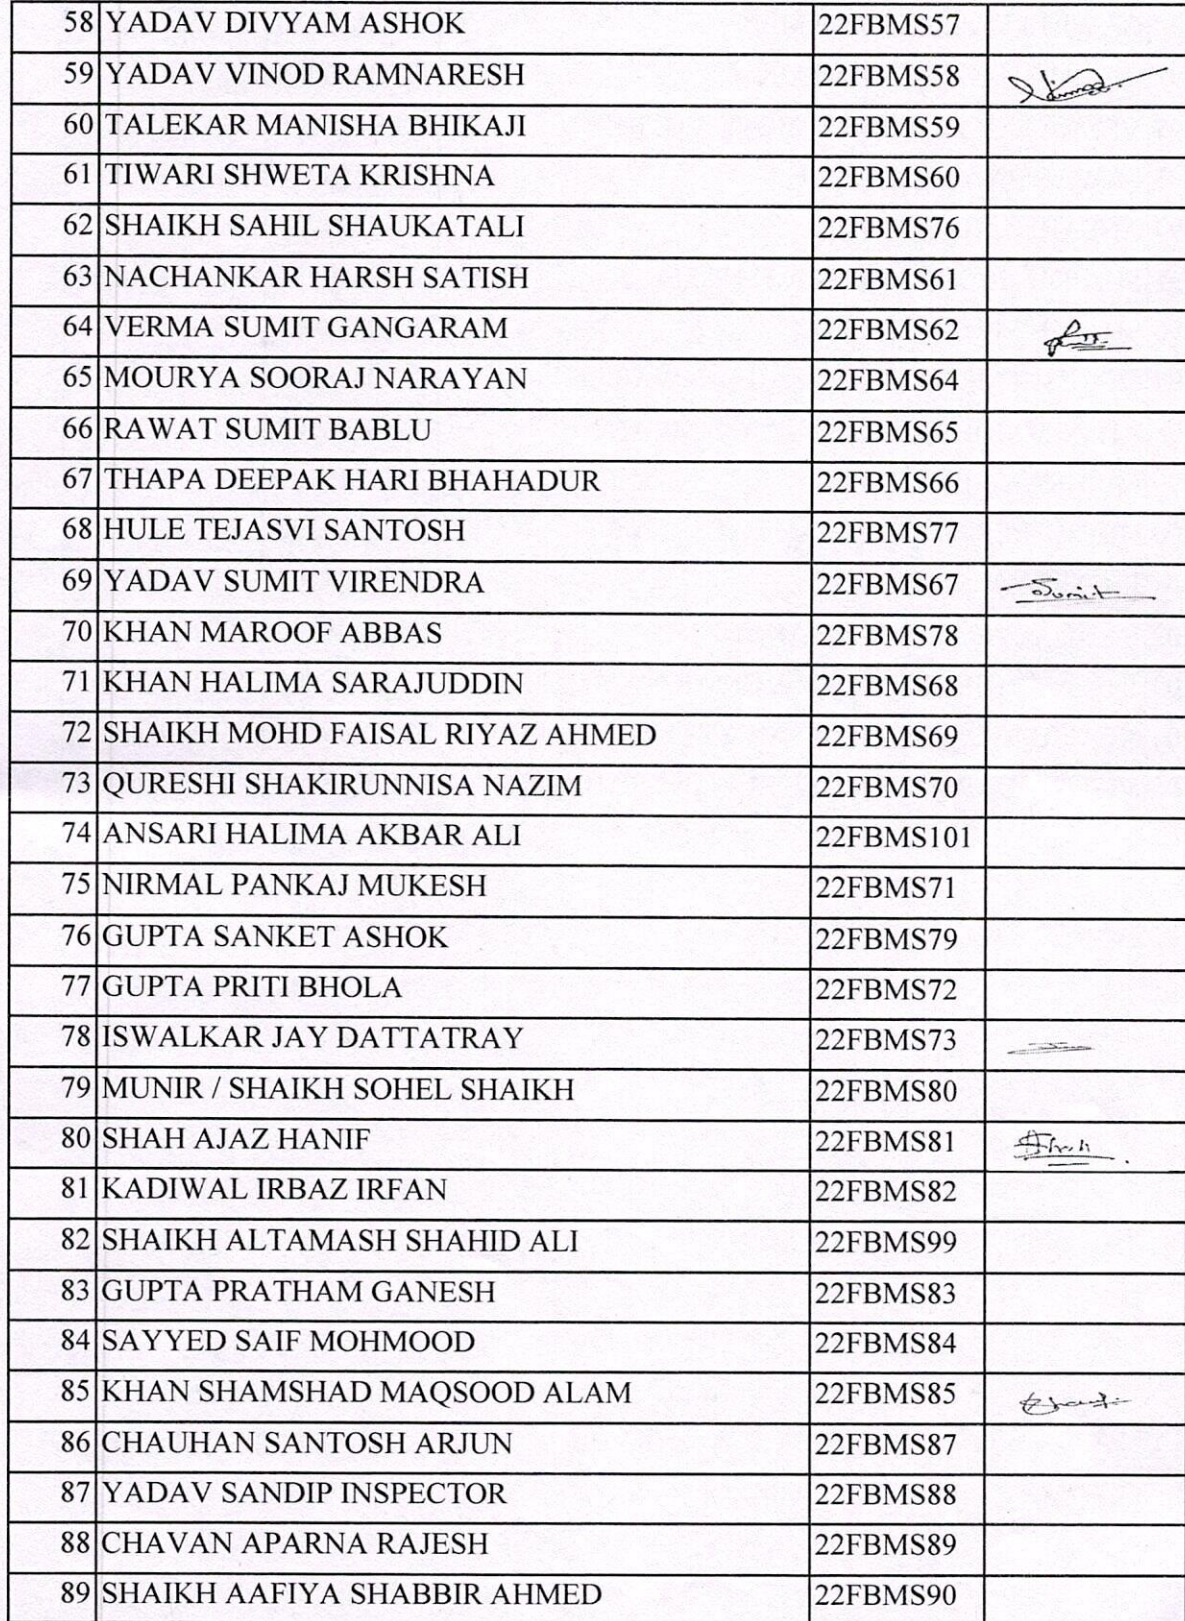 58 YADAV DIVYAM ASHOK 22FBMS57
59 YADAV VINOD RAMNARESH 22FBMS58
60 TALEKAR MANISHA BHIKAJI 22FBMS59
61 TIWARI SHWETA KRISHNA 22FBMS60
62 SHAIKH SAHIL SHAUKATALI 22FBMS76
63 NACHANKAR HARSH SATISH 22FBMS61
64 VERMA SUMIT GANGARAM 22FBMS62
65 MOURYA SOORAJ NARAYAN 22FBMS64
66 RAWAT SUMIT BABLU 22FBMS65
67 THAPA DEEPAK HARI BHAHADUR 22FBMS66
68 HULE TEJASVI SANTOSH 22FBMS77
69 YADAV SUMIT VIRENDRA 22FBMS67 Sumit
70 KHAN MAROOF ABBAS 22FBMS78
71 KHAN HALIMA SARAJUDDIN 22FBMS68
72 SHAIKH MOHD FAISAL RIYAZ AHMED 22FBMS69
73 QURESHI SHAKIRUNNISA NAZIM 22FBMS70
74 ANSARI HALIMA AKBAR ALI 22FBMS101
75 NIRMAL PANKAJ MUKESH 22FBMS71
76 GUPTA SANKET ASHOK 22FBMS79
77 GUPTA PRITI BHOLA 22FBMS72
78 ISWALKAR JAY DATTATRAY 22FBMS73
79 MUNIR / SHAIKH SOHEL SHAIKH 22FBMS80
80 SHAH AJAZ HANIF 22FBMS81
81 KADIWAL IRBAZ IRFAN 22FBMS82
82 SHAIKH ALTAMASH SHAHID ALI 22FBMS99
83 GUPTA PRATHAM GANESH 22FBMS83
84 SAYYED SAIF MOHMOOD 22FBMS84
85 KHAN SHAMSHAD MAQSOOD ALAM 22FBMS85
86 CHAUHAN SANTOSH ARJUN 22FBMS87
87 YADAV SANDIP INSPECTOR 22FBMS88
88 CHAVAN APARNA RAJESH 22FBMS89
89 SHAIKH AAFIYA SHABBIR AHMED 22FBMS90